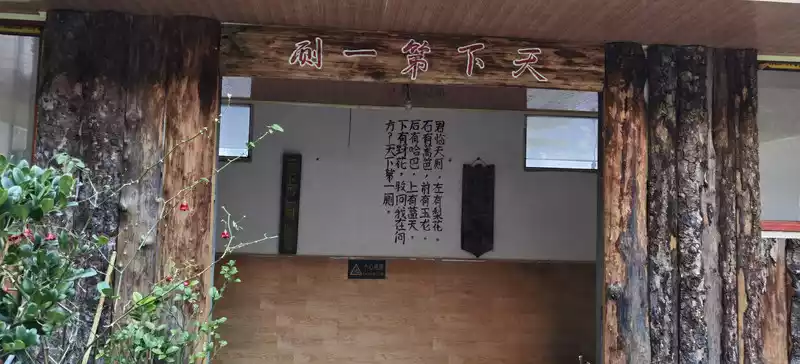 天下第一厕
君临天厕,左有梨花,
右有篱笆,前有玉龙,
后有哈巴,上有蓝天,
下有野花,敢问我在何
方?天下第一厕。
小心地滑